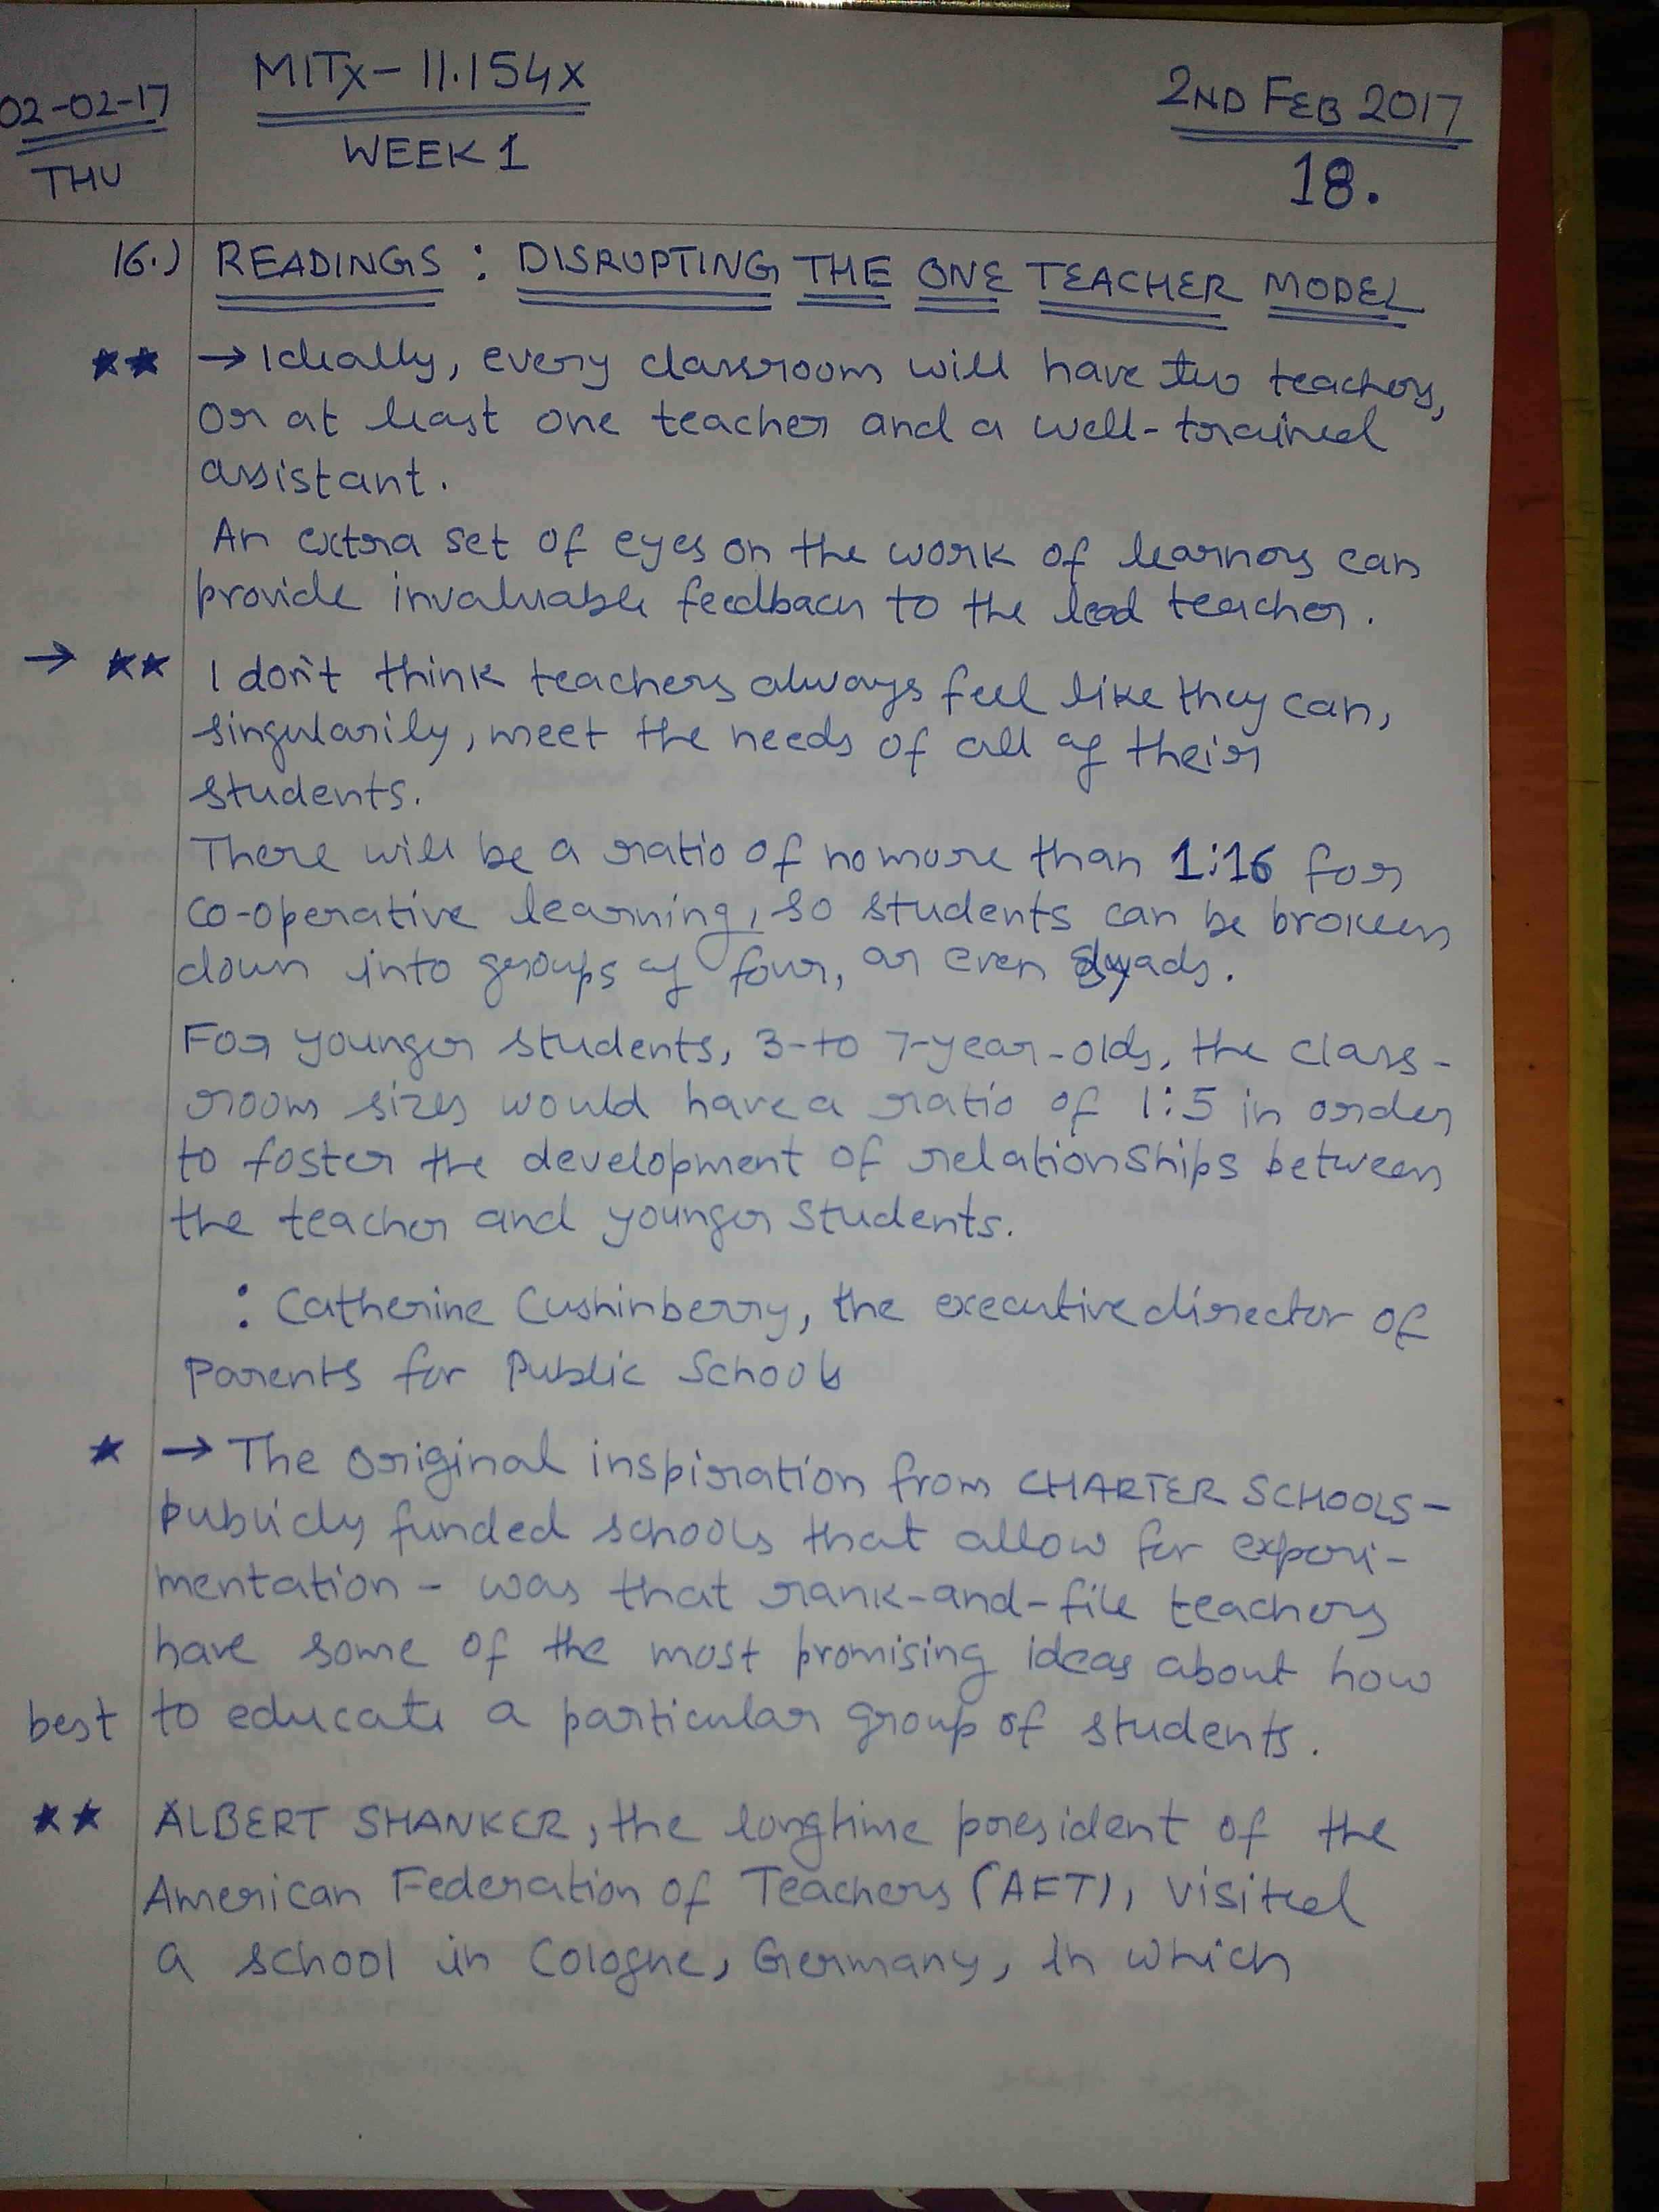 02-02-17
THU
MITx-11.154x
WEEK 1
2ND FEB 2017
18.
16.) READINGS : DISRUPTING THE ONE TEACHER MODEL
★★ → Ideally, every classroom will have two teachers,
or at least one teacher and a well-trained
assistant.
An extra set of eyes on the work of learners can
provide invaluable feedback to the lead teacher.
→ ★★ I don't think teachers always feel like they can,
singularily, meet the needs of all of their
students.
There will be a ratio of no more than 1:16 for
co-operative learning, so students can be broken
down into groups of four, or even dyads.
For younger students, 3-to 7-year-olds, the class-
room sizes would have a ratio of 1:5 in order
to foster the development of relationships between
the teacher and younger students.
: Catherine Cushinberry, the executive director of
Parents for Public Schools
★ → The original inspiration from CHARTER SCHOOLS-
publicly funded schools that allow for experi-
mentation - was that rank-and-file teachers
have some of the most promising ideas about how
best to educate a particular group of students.
★★ ALBERT SHANKER, the longtime president of the
American Federation of Teachers (AFT), visited
a school in Cologne, Germany, in which